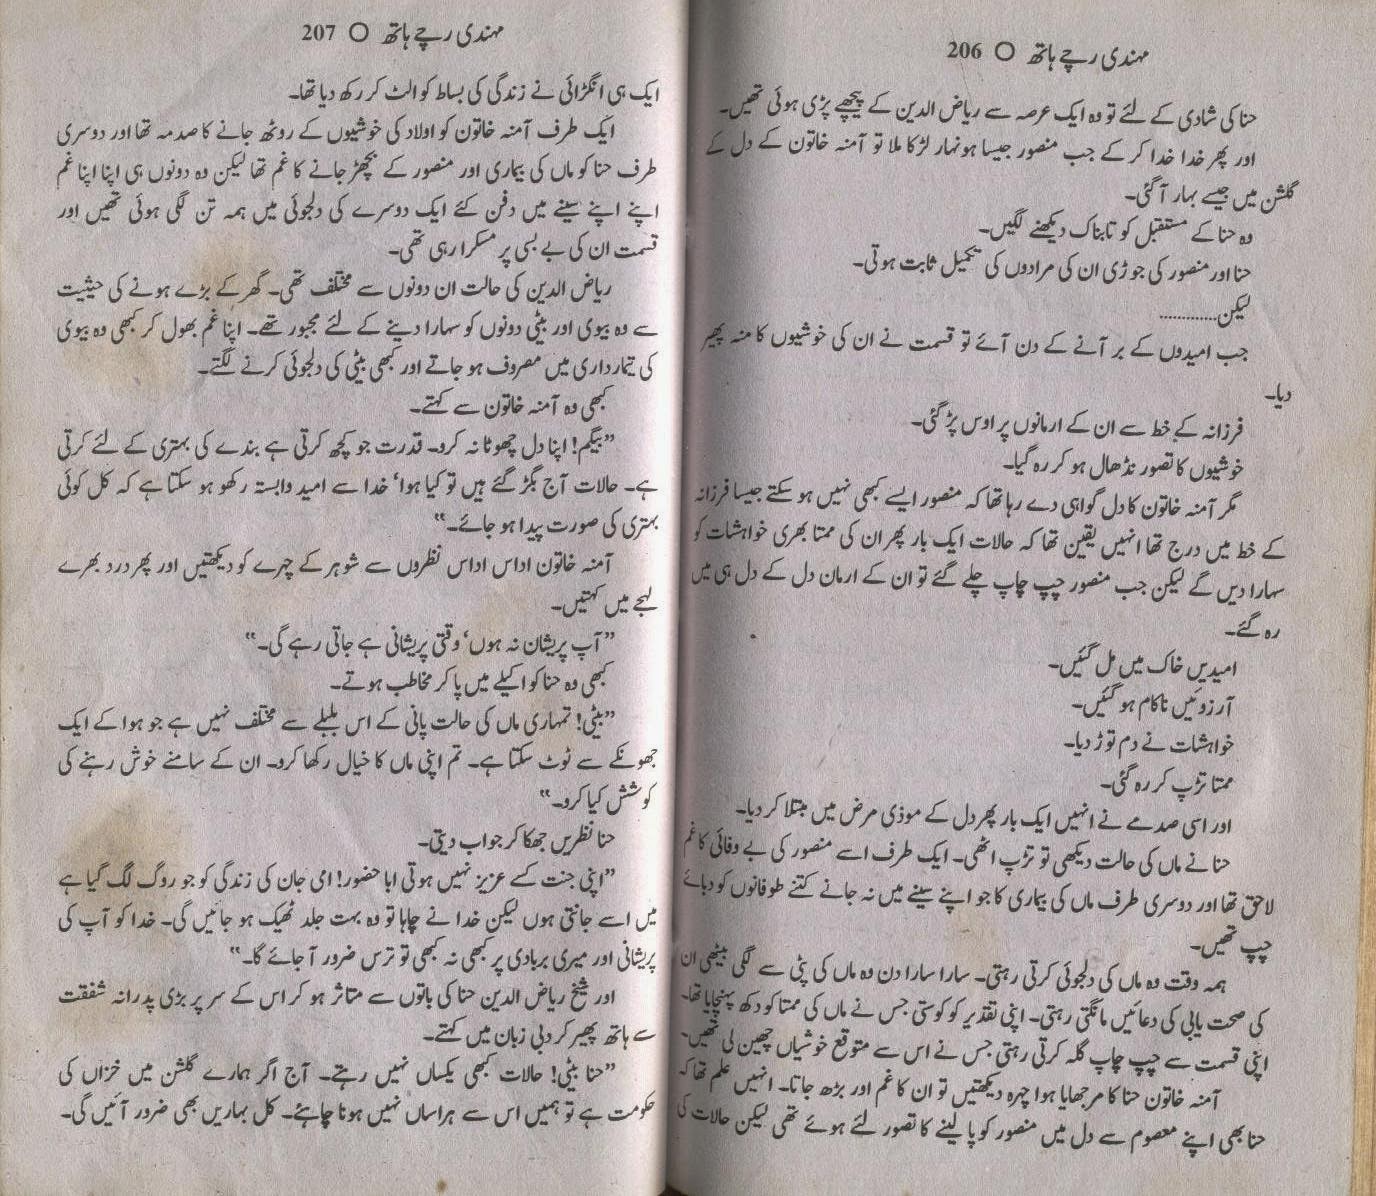 مہندی رچے ہاتھ O 206
حنا کی شادی کے لئے تو وہ ایک عرصہ سے ریاض الدین کے پیچھے پڑی ہوئی تھیں۔
اور پھر خدا خدا کر کے جب منصور جیسا ہونہار لڑکا ملا تو آمنہ خاتون کے دل کے
گلشن میں جیسے بہار آ گئی۔
وہ حنا کے مستقبل کو تابناک دیکھنے لگیں۔
حنا اور منصور کی جوڑی ان کی مرادوں کی تکمیل ثابت ہوتی۔
لیکن............
جب امیدوں کے بر آنے کے دن آئے تو قسمت نے ان کی خوشیوں کا منہ پھیر
دیا۔
فرزانہ کے خط سے ان کے ارمانوں پر اوس پڑ گئی۔
خوشیوں کا تصور نڈھال ہو کر رہ گیا۔
مگر آمنہ خاتون کا دل گواہی دے رہا تھا کہ منصور ایسے کبھی نہیں ہو سکتے جیسا فرزانہ
کے خط میں درج تھا انہیں یقین تھا کہ حالات ایک بار پھر ان کی ممتا بھری خواہشات کو
سہارا دیں گے لیکن جب منصور چپ چاپ چلے گئے تو ان کے ارمان دل کے دل ہی میں
رہ گئے۔
امیدیں خاک میں مل گئیں۔
آرزوئیں ناکام ہو گئیں۔
خواہشات نے دم توڑ دیا۔
ممتا تڑپ کر رہ گئی۔
اور اسی صدمے نے انہیں ایک بار پھر دل کے موذی مرض میں مبتلا کر دیا۔
حنا نے ماں کی حالت دیکھی تو تڑپ اٹھی۔ ایک طرف اسے منصور کی بے وفائی کا غم
لاحق تھا اور دوسری طرف ماں کی بیماری کا جو اپنے سینے میں نہ جانے کتنے طوفانوں کو دبائے
چپ تھیں۔
ہمہ وقت وہ ماں کی دلجوئی کرتی رہتی۔ سارا سارا دن وہ ماں کی پٹی سے لگی بیٹھی ان
کی صحت یابی کی دعائیں مانگتی رہتی۔ اپنی تقدیر کو کوستی جس نے ماں کی ممتا کو دکھ پہنچایا تھا۔
اپنی قسمت سے چپ چاپ گلہ کرتی رہتی جس نے اس سے متوقع خوشیاں چھین لی تھیں۔
آمنہ خاتون حنا کا مرجھایا ہوا چہرہ دیکھتیں تو ان کا غم اور بڑھ جاتا۔ انہیں علم تھا کہ
حنا بھی اپنے معصوم سے دل میں منصور کو پا لینے کا تصور لئے ہوئے تھی لیکن حالات کی
مہندی رچے ہاتھ O 207
ایک ہی انگڑائی نے زندگی کی بساط کو الٹ کر رکھ دیا تھا۔
ایک طرف آمنہ خاتون کو اولاد کی خوشیوں کے روٹھ جانے کا صدمہ تھا اور دوسری
طرف حنا کو ماں کی بیماری اور منصور کے بچھڑ جانے کا غم تھا لیکن وہ دونوں ہی اپنا اپنا غم
اپنے اپنے سینے میں دفن کئے ایک دوسرے کی دلجوئی میں ہمہ تن لگی ہوئی تھیں اور
قسمت ان کی بے بسی پر مسکرا رہی تھی۔
ریاض الدین کی حالت ان دونوں سے مختلف تھی۔ گھر کے بڑے ہونے کی حیثیت
سے وہ بیوی اور بیٹی دونوں کو سہارا دینے کے لئے مجبور تھے۔ اپنا غم بھول کر کبھی وہ بیوی
کی تیمارداری میں مصروف ہو جاتے اور کبھی بیٹی کی دلجوئی کرنے لگتے۔
کبھی وہ آمنہ خاتون سے کہتے۔
”بیگم! اپنا دل چھوٹا نہ کرو۔ قدرت جو کچھ کرتی ہے بندے کی بہتری کے لئے کرتی
ہے۔ حالات آج بگڑ گئے ہیں تو کیا ہوا‘ خدا سے امید وابستہ رکھو ہو سکتا ہے کہ کل کوئی
بہتری کی صورت پیدا ہو جائے۔“
آمنہ خاتون اداس اداس نظروں سے شوہر کے چہرے کو دیکھتیں اور پھر درد بھرے
لہجے میں کہتیں۔
”آپ پریشان نہ ہوں‘ وقتی پریشانی ہے جاتی رہے گی۔“
کبھی وہ حنا کو اکیلے میں پا کر مخاطب ہوتے۔
”بیٹی! تمہاری ماں کی حالت پانی کے اس بلبلے سے مختلف نہیں ہے جو ہوا کے ایک
جھونکے سے ٹوٹ سکتا ہے۔ تم اپنی ماں کا خیال رکھا کرو۔ ان کے سامنے خوش رہنے کی
کوشش کیا کرو۔“
حنا نظریں جھکا کر جواب دیتی۔
”اپنی جنت کسے عزیز نہیں ہوتی ابا حضور! امی جان کی زندگی کو جو روگ لگ گیا ہے
میں اسے جانتی ہوں لیکن خدا نے چاہا تو وہ بہت جلد ٹھیک ہو جائیں گی۔ خدا کو آپ کی
پریشانی اور میری بربادی پر کبھی نہ کبھی تو ترس ضرور آ جائے گا۔“
اور شیخ ریاض الدین حنا کی باتوں سے متاثر ہو کر اس کے سر پر بڑی پدرانہ شفقت
سے ہاتھ پھیر کر دبی زبان میں کہتے۔
”حنا بیٹی! حالات کبھی یکساں نہیں رہتے۔ آج اگر ہمارے گلشن میں خزاں کی
حکومت ہے تو ہمیں اس سے ہراساں نہیں ہونا چاہئے۔ کل بہاریں بھی ضرور آئیں گی۔